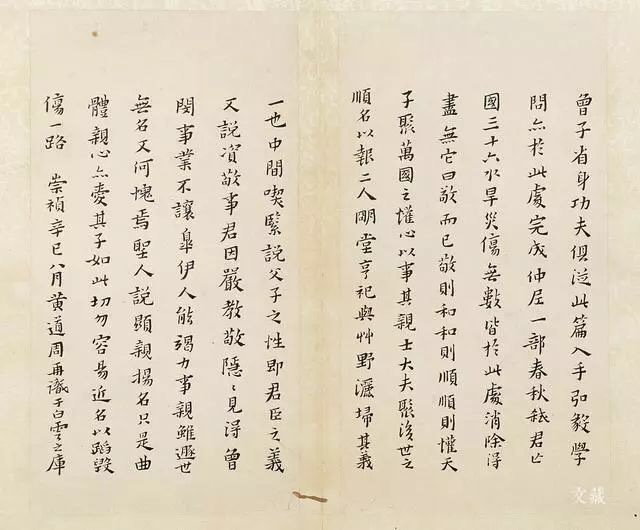 曾子省身功夫俱從此篇入手弘毅學
問亦於此處完成仲尼一部春秋弑君亡
國三十六水旱災傷無數皆於此處消除得
盡無它曰敬而已敬則和和則順順則懽天
子聚萬國之懽心以事其親士大夫聚後世之
順名以報二人明堂亨祀與艸野灑埽其義
一也中間喫緊說父子之性即君臣之義
又說資敬事君因嚴教敬隱〻見得曾
閔事業不讓皐伊人能竭力事親雖遯世
無名又何愧焉聖人說顯親揚名只是曲
體親心亦憂其子如此切勿容易近名以蹈毀
傷一路 崇禎辛巳八月黃道周再識于白雲之庫
文藏